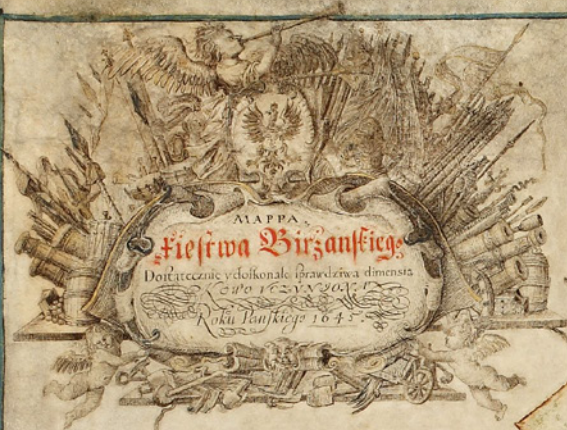 MAPPA
Xiestwa Birżanskiego
Dostatecznie y doskonale sprawdziwa dimensia
NOWO VCZYNIONA
Roku Panskiego 1645